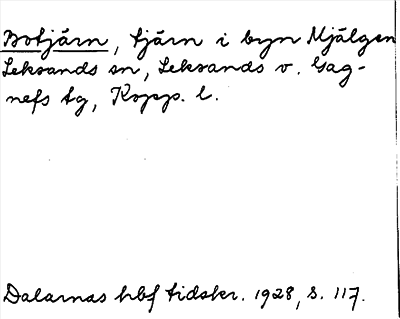 Botjärn, tjärn i byn Mjälgen
Leksands sn, Leksands o. Gag-
nefs tg, Kopp. l.
Dalarnas hbf tidskr. 1928, s. 117.